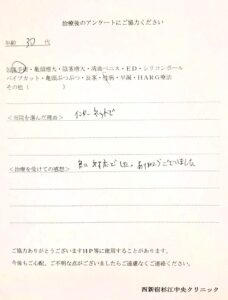 治療後のアンケートにご協力ください
年齢 30 代
包茎手術・亀頭増大・陰茎増大・清血ペニス・ED・シリコンボール
パイプカット・亀頭ぶつぶつ・長茎・性病・早漏・HARG療法
その他（ ）
＜当院を選んだ理由＞ インターネットで
＜治療を受けての感想＞
ありがとうございました
ご協力ありがとうございますHP等に使用することがあります。
今後もご心配、ご不明な点がございましたらご遠慮なくご連絡ください。
西新宿杉江中央クリニック